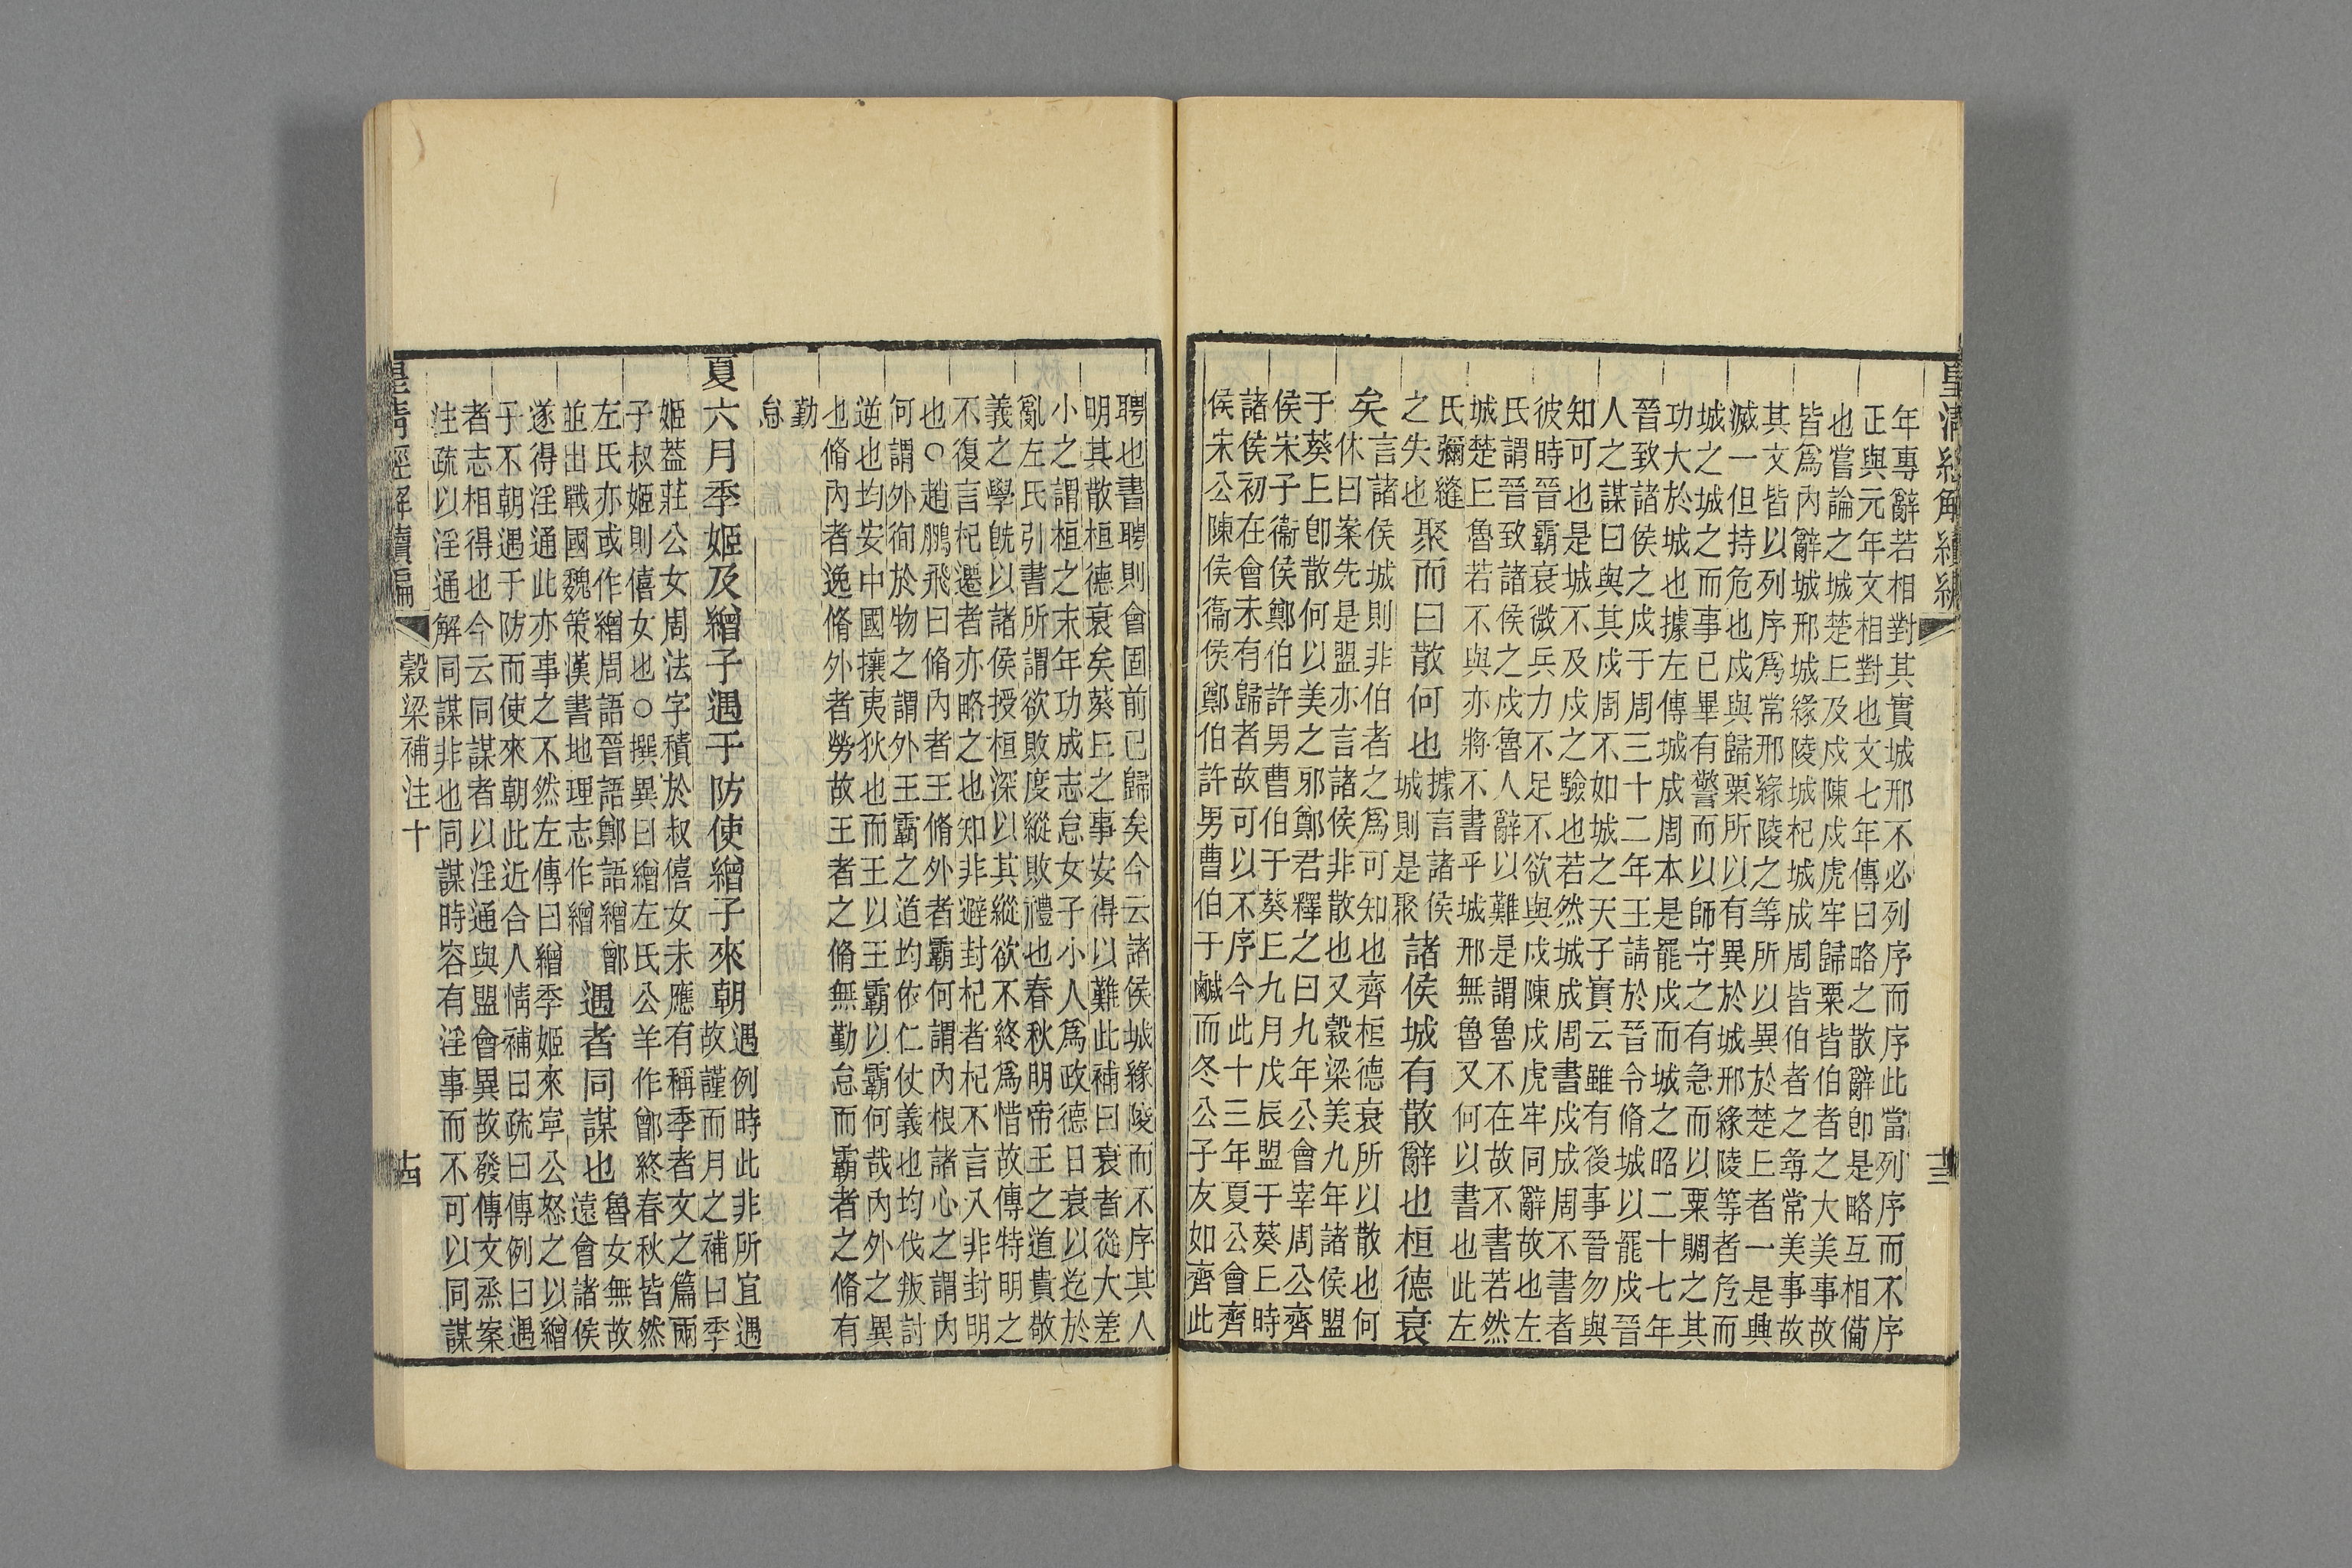 皇清經解續編
十三
年專辭若相對其實城邢不必列序而序此當列序而不序
正與元年文相對也文七年傳曰略之散辭卽是略互相僃
也嘗論之城楚丘及戍陳戍虎牢歸粟皆伯者之大美事故
皆爲內辭城邢城緣陵城杞城成周皆伯者之尋常美事故
其文皆以列序爲常邢緣陵之等所以異於楚丘者一是興
滅一但持危也戍與歸粟所以有異於城邢緣陵等者危而
城之城之而事已畢有警而以師守之有急而以粟賙之其
功大於城也據左傳城成周本是罷戍而城之昭二十七年
晉致諸侯之戍于周三十二年王請於晉令脩城以罷戍晉
人之謀曰與其戍周不如城之天子實云雖有後事晉勿與
知可也是城不及戍之驗也若然城成周書戍成周不書者
彼時晉霸衰微兵力不足不欲與戍陳戍虎牢同辭故也左
氏謂晉致諸侯之戍魯人辭以難是謂魯不在故不書若然
城楚丘魯若不與亦將不書乎城邢無魯又何以書也此左
氏彌縫
之失也
聚而曰散何也
據言諸侯
城則是聚
諸侯城有散辭也桓德衰
矣
言諸侯城則非伯者之爲可知也齊桓德衰所以散也何
休曰案先是盟亦言諸侯非散也又穀梁美九年諸侯盟
于葵丘卽散何以美之邪鄭君釋之曰九年公會宰周公齊
侯宋子衞侯鄭伯許男曹伯于葵丘九月戊辰盟于葵丘時
諸侯初在會未有歸者故可以不序今此十三年夏公會齊
侯宋公陳侯衞侯鄭伯許男曹伯于鹹而冬公子友如齊此
聘也書聘則會固前已歸矣今云諸侯城緣陵而不序其人
明其散桓德衰矣葵丘之事安得以難此補曰衰者從大差
小之謂桓之末年功成志怠女子小人爲政德日衰以迄於
亂左氏引書所謂欲敗度縱敗禮也春秋明帝王之道貴敬
義之學旣以諸侯授桓深以其縱欲不終爲惜故傳特明之
不復言杞遷者亦略之也知非避封杞者杞不言入非封明
也○趙鵬飛曰脩內者王脩外者霸何謂內根諸心之謂內
何謂外徇於物之謂外王霸之道均依仁仗義也均伐叛討
逆也均安中國攘夷狄也而王以王霸以霸何哉內外之異
也脩內者逸脩外者勞故王者之脩無勤怠而霸者之脩有
勤
怠
夏六月季姬及繒子遇于防使繒子來朝
遇例時此非所宜遇
故謹而月之補曰季
姬蓋莊公女周法字積於叔僖女未應有稱季者文之篇兩
子叔姬則僖女也○撰異曰繒左氏公羊作鄫終春秋皆然
左氏亦或作繒周語晉語鄭語繒鄫
並出戰國魏策漢書地理志作繒
遇者同謀也
魯女無故
遠會諸侯
遂得淫通此亦事之不然左傳曰繒季姬來寧公怒之以繒
于不朝遇于防而使來朝此近合人情補曰疏曰傳例曰遇
者志相得也今云同謀者以淫通與盟會異故發傳文烝案
注疏以淫通解同謀非也同謀時容有淫事而不可以同謀
皇清經解續編
穀梁補注十
十四